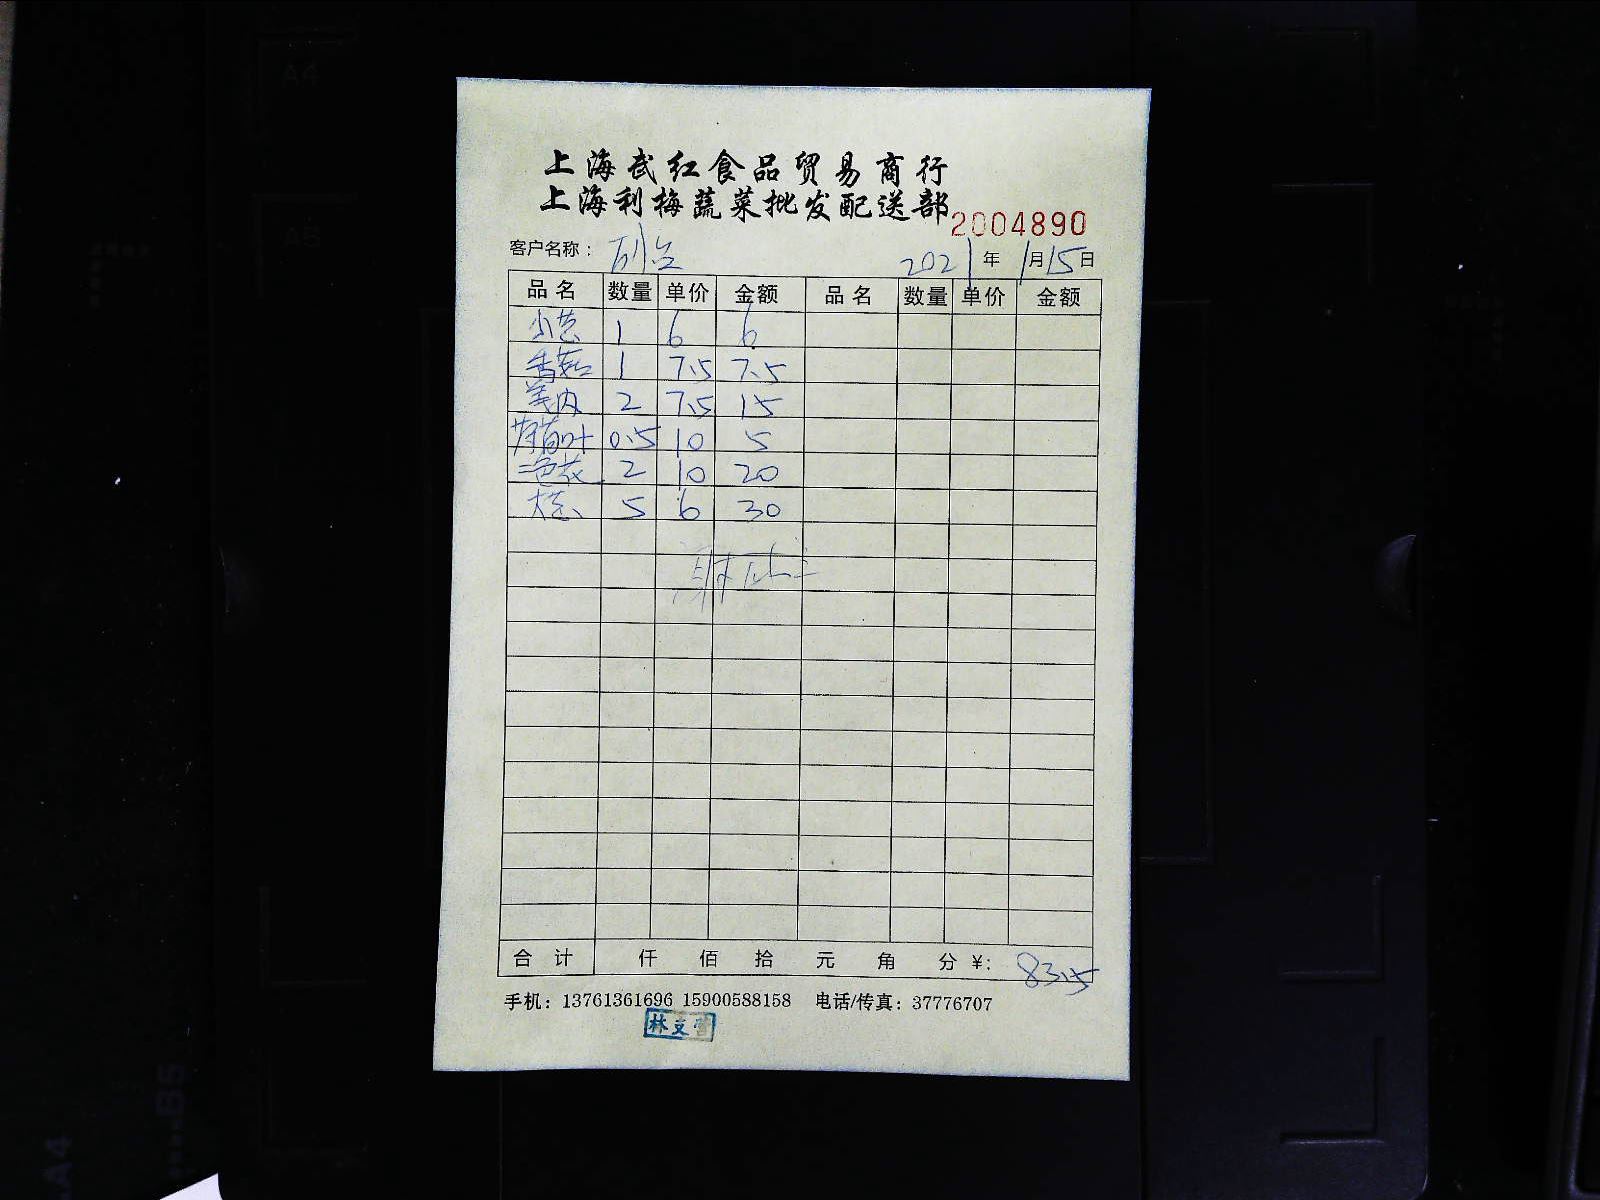 上海武红食品贸易商行
上海利梅蔬菜批发配送部
2004890
客户名称： 2021年1月15日
品名 数量 单价 金额 品名 数量 单价 金额
小 1 6 6
香菇 1 7.5 7.5
2 7.5 15
0.5 10 5
二色花 2 10 20
大 5 6 30
合计 仟 佰 拾 元 角 分 ￥: 83.5
手机：13761361696 15900588158 电话/传真：37776707
林支
A4
A5
B5
A4